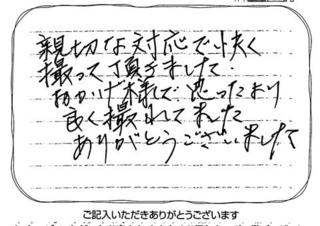 親切な対応で快く
撮って頂きました
おかげ様で思ったより
良く撮れてました
ありがとうございました
ご記入いただきありがとうございます